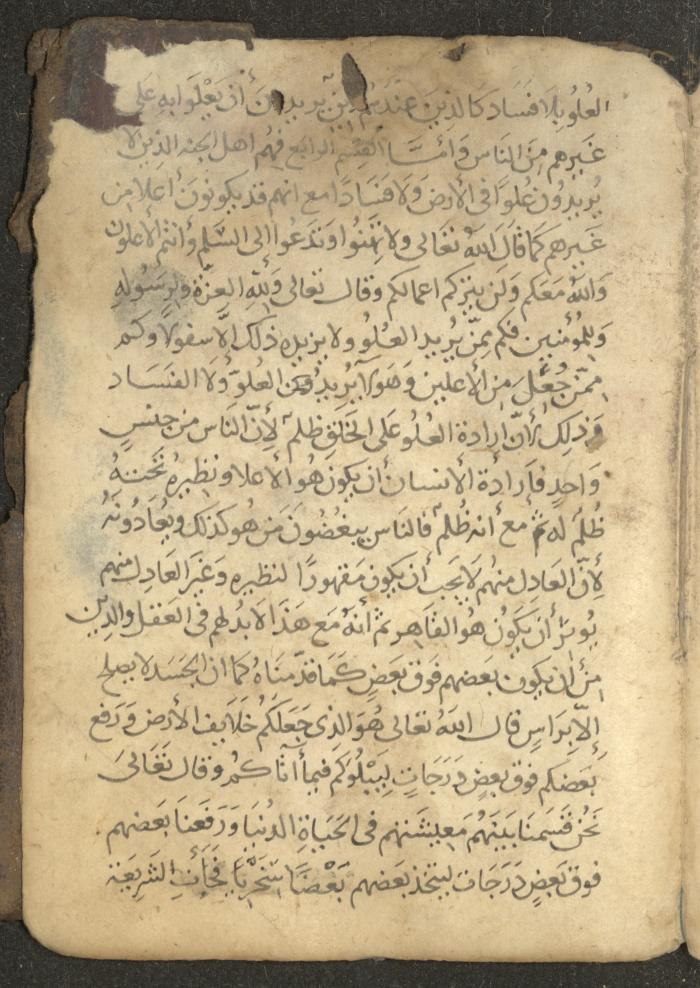 العُلُو بلا فَسَاد كالذِينَ عندَهُم دين يريدون أن يَعْلوا به على
غيرهم مِنَ الناس وَأمّا القِسم الرابع فهُم اهل الجنه الذين لا
يُرِيدُون عُلوًا في الأرضَ وَلا فسَادًا مع انهم قد يكونونَ أعلا مِن
غيرهم كما قال اللهُ تعالى ولا تهِنُوا وَتدعُوا الى السَّلم وأنتم الأعلون
وَاللهُ مَعَكم وَلَن يتِرَكم اعمالكم وقال تعالى وَلِلّهِ العِزّة ولِرَسُولِهِ
وَلِلمُؤمنِين فكم مِمّن يُرِيد العُلُوَّ ولا يزيده ذلك إلّا سفولا وكم
مِمّن جُعِلَ مِن الأعلين وَهو لا يُريدُ العُلوّ وَلا الفسَاد
وَذلِك لأنّ إرادة العُلُو على الخلق ظلمٌ لأنّ الناس من جنسٍ
وَاحدٍ فإرادة الأنسان أن يكون هُو الأعلا ونظيرهُ تحتهُ
ظُلمٌ له ثم مع أنه ظُلمٌ فالناس يبغضُونَ مَن هو كذلك ويُعَادُونَهُ
لأنّ العَادِل منهُم لا يحِب أن يكون مَقهورًا لنظيره وَغير العَادِل منهم
يُوثِر أن يَكُون هُو القاهِر ثم أنهُ مَع هَذا لا بُد لهم في العَقل والدِين
مِن أن يكون بَعضهم فوق بَعضٍ كَمَا قدّمنَاهُ كما ان الجَسَد لا يصلح
إلّا بِرَاسٍ قال اللهُ تعالى هُوَ الذِي جَعَلَكُم خَلايفَ الأرض وَرَفع
بَعضكم فوق بعضٍ دَرَجَاتٍ لِيَبْلُوَكم فيما آتاكُم وقال تعَالى
نَحنُ قسَمنَا بَينَهُم مَعِيشَتهم في الحَياةِ الدُنيَا وَرَفعنَا بَعضهم
فوق بَعضٍ دَرَجَات ليتخِذ بَعضهم بَعْضًا سُخرِيًّا فجَأتِ الشريعَة